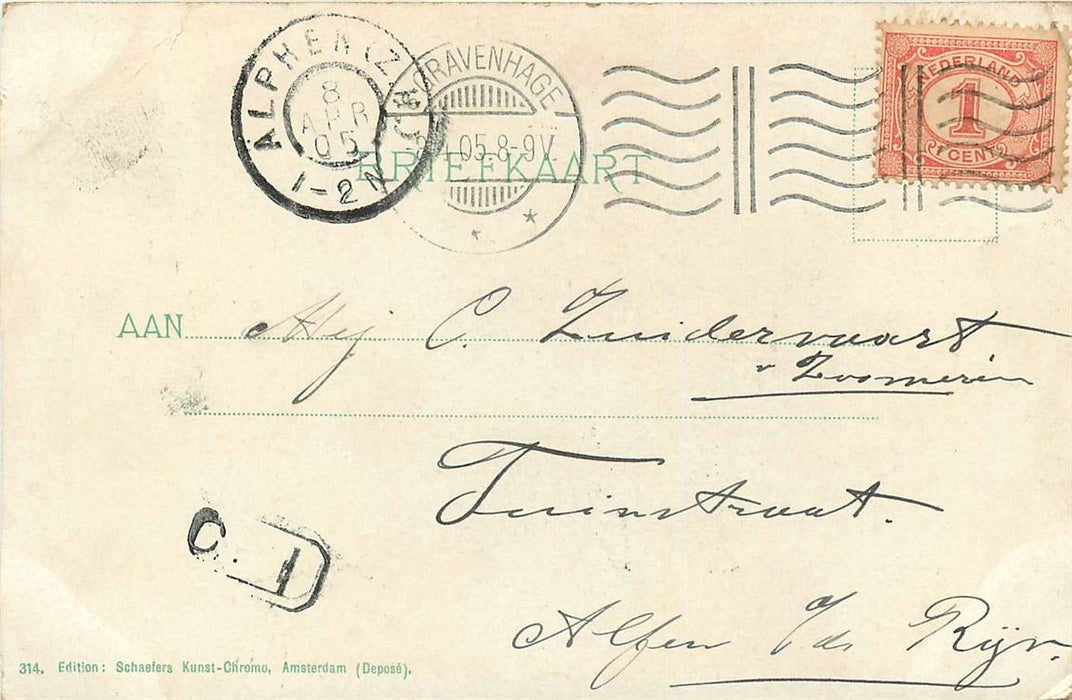 ALPHEN (Z.H.)
8
APR
05
1-2N
'S-GRAVENHAGE
05.8-9V
NEDERLAND
1
1 CENT
BRIEFKAART
AAN Mej C. Zuidervaart
v Zoomeren
Tuinstraat.
C. 1
Alfen a/d Rijn.
314. Edition: Schaefers Kunst-Chromo, Amsterdam (Deposé).